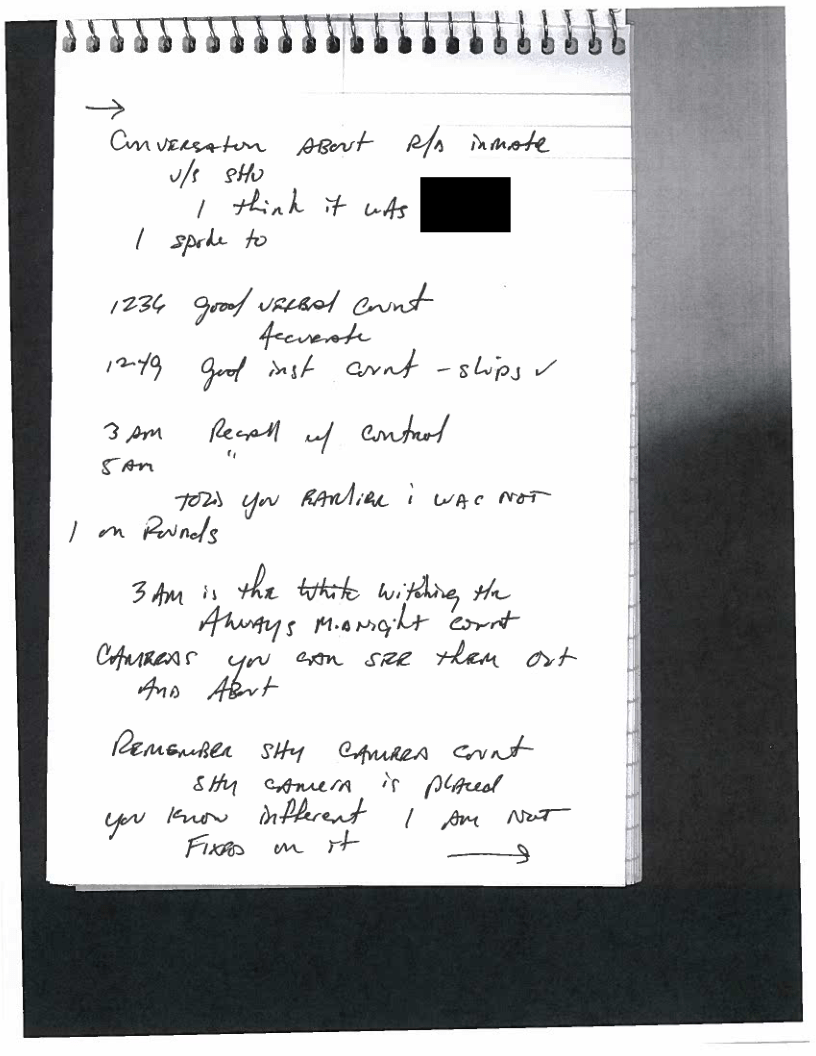 →
Conversation ABout R/A inmate
v/s SHU
I think it was
I spoke to
1236 good verbal count
Accurate
1249 good inst count - slips ✓
3 AM Recall w/ control
5 AM "
TOLD you EARliER i WAS NOT
I on Rounds
3 AM is the White Witching Hr
Always MidNight count
CAMERAS you can SEE them out
AND ABout
REMEMBER SHU CAMERA count
SHU CAMERA is placed
you know different I AM NOT
FIXED on it →